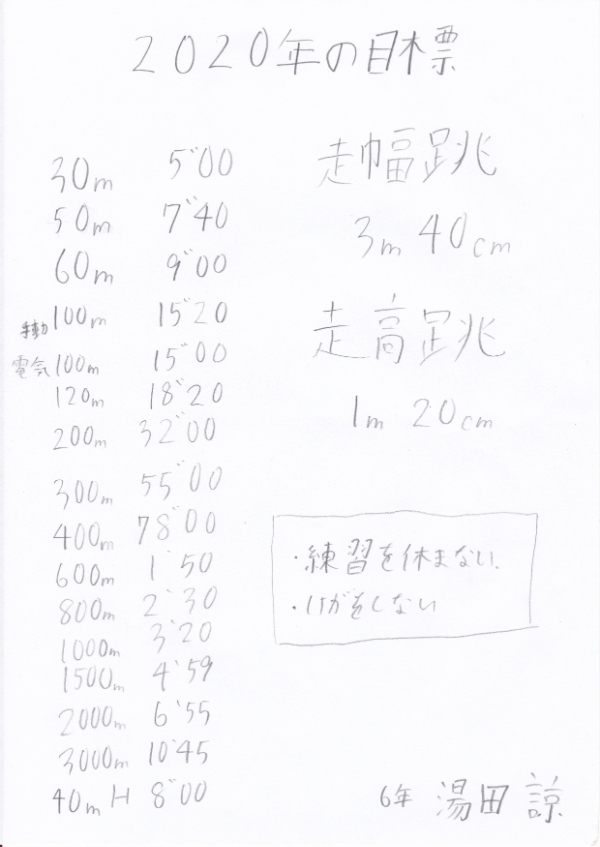 2020年の目標
30m 5"00
50m 7"40
60m 9"00
手動 100m 15"20
電気 100m 15"00
120m 18"20
200m 32"00
300m 55"00
400m 78"00
600m 1'50
800m 2'30
1000m 3'20
1500m 4'59
2000m 6'55
3000m 10'45
40mH 8"00
走幅跳
3m 40cm
走高跳
1m 20cm
・練習を休まない.
・けがをしない
6年 湯田 諒